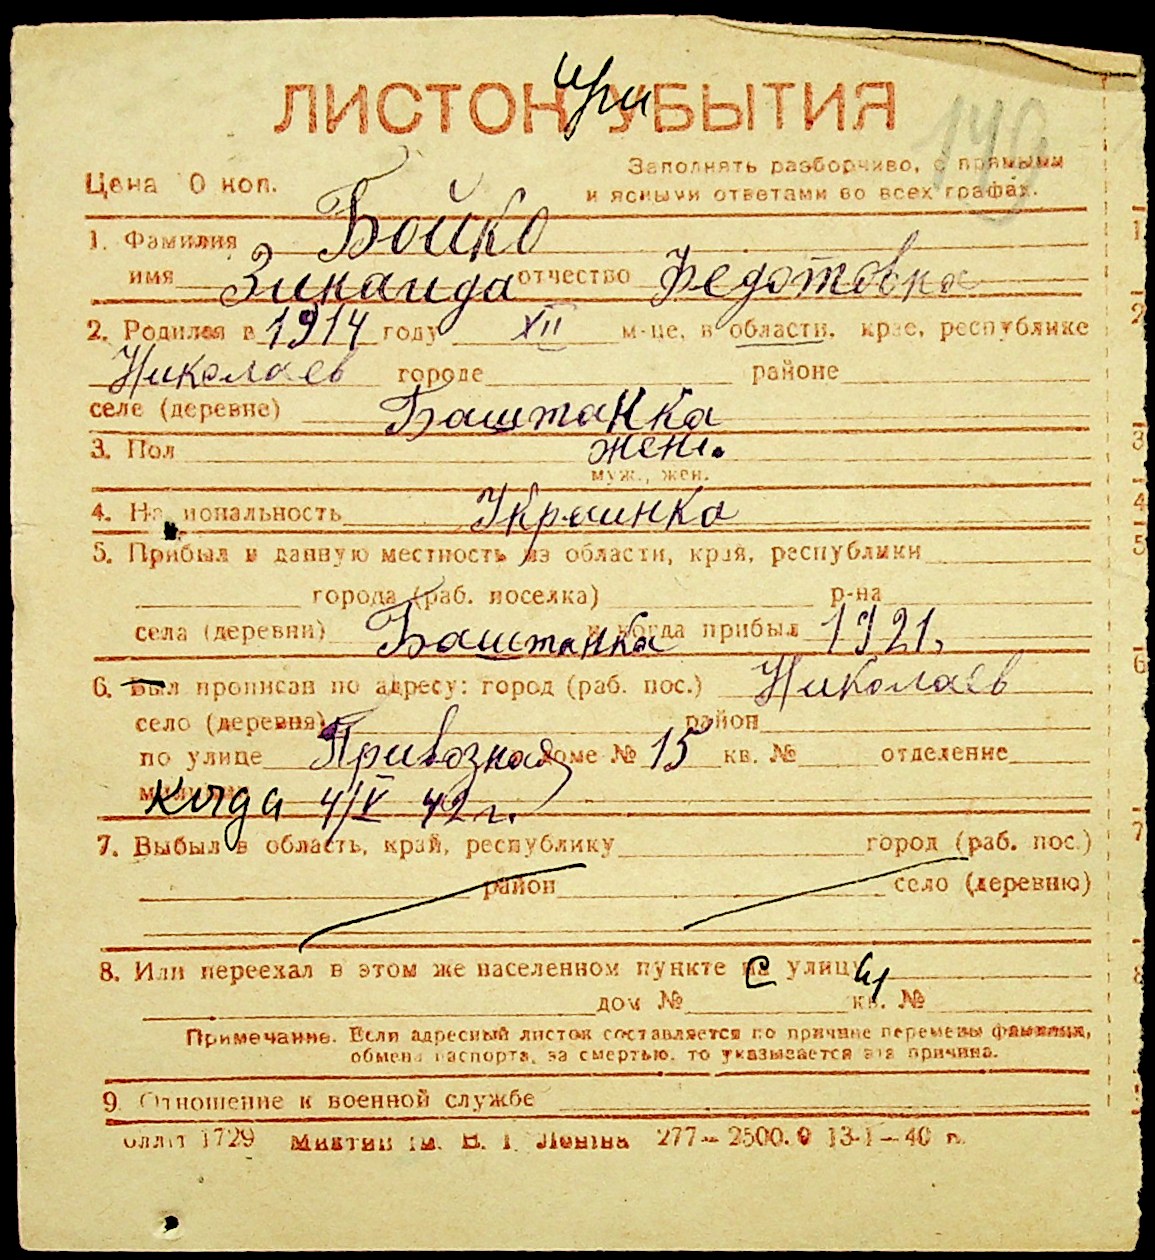 при
ЛИСТОК УБЫТИЯ
149
Цена 0 коп.
Заполнять разборчиво, с прямыми
и ясными ответами во всех графах.
1. Фамилия Бойко
имя Зинаида отчество Федотовна
2. Родился в 1914 году XII м-це, в области, крае, республике
Николаев городе районе
селе (деревне) Баштанка
3. Пол жен.
муж., жен.
4. Национальность Украинка
5. Прибыл в данную местность из области, края, республики
города (раб. поселка) р-на
села (деревни) Баштанка и когда прибыл 1921.
6. Был прописан по адресу: город (раб. пос.) Николаев
село (деревня) район
по улице Привозная доме № 15 кв. № отделение
милиции когда 4/V 42 г.
7. Выбыл в область, край, республику город (раб. пос.)
район село (деревню)
8. Или переехал в этом же населенном пункте с улицы
дом № кв. №
Примечание. Если адресный листок составляется по причине перемены фамилии,
обмена паспорта, за смертью, то указывается эта причина.
9. Отношение к военной службе
1729 им. В. І. Леніна 277—2500.0 13-І—40 г.